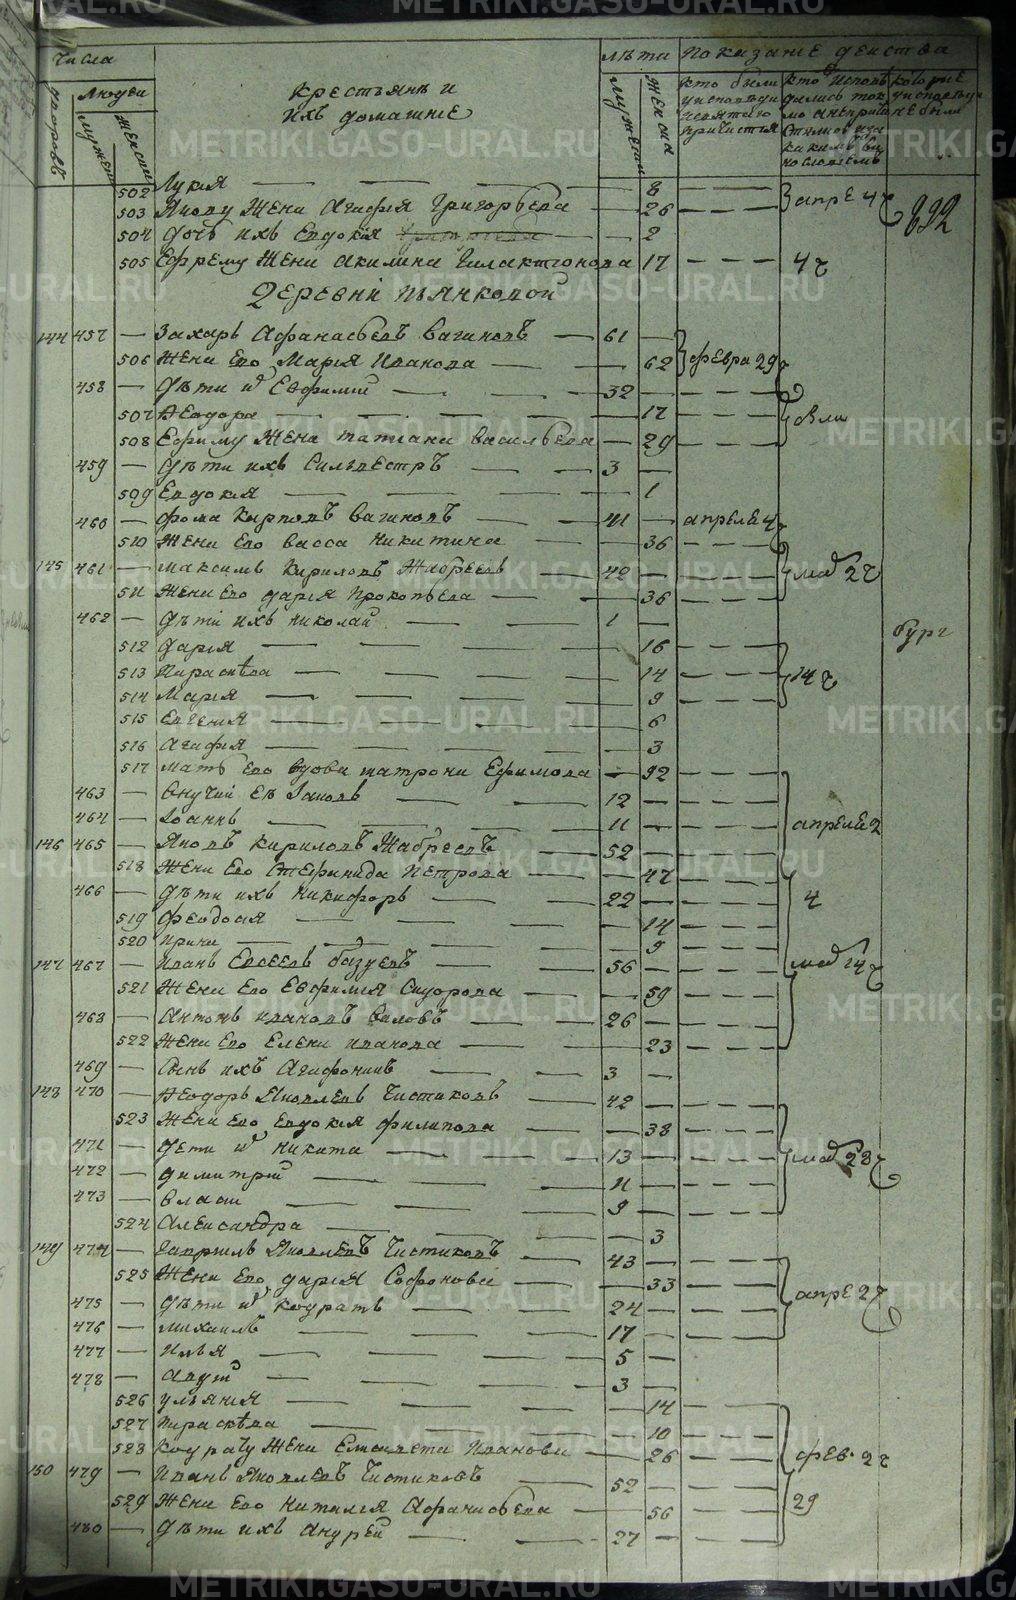 Числа
лѣта показание действа
Людей
крестьяне и
ихъ домашнiе
кто были
у исповѣди
и святаго
причастiя
кто исповѣ
дались ток
мо а не прича
стились и за
какимъ ви
нословiемъ
которые
у исповѣди
не были
502 Лукiя — 8
503 Якову жена Агафiя Григорьева — 26
апре 4
692
504 Дочь ихъ Евдокiя — 2
505 Ефрему жена Акилина Галактiонова 17 4
Деревни Пьянковой
144 457 — Захаръ Афанасьевъ Вагиновъ — 61 —
506 Жена его Марiя Иванова — 62
февра 29
458 — Дѣти и Евфимiй — 32
507 Ѳеодора — 17
508 Ефиму жена Татiана Васильева — 29
459 — Дѣти ихъ Сильвестръ — 3 —
509 Евдокiя — 1
460 — Фома Карповъ Вагиновъ — 41 — апреля 4
510 Жена его Васса Никитина — 36
145 461 — Максимъ Кириловъ Жабреевъ — 42 —
маi 27
511 Жена его Дарiя Прокопьева — 36
462 — Дѣти ихъ Николай — 1 —
512 Дарiя — 16
513 Параскѣва — 14
14
514 Марiя — 9
515 Евгенiя — 6
516 Агафiя — 3
517 Мать его вдова Матрона Ефимова — 92
463 — Внучий ея Iаковъ — 12 —
464 — Iоаннъ — 11 —
апреля 2
146 465 — Яковъ Кириловъ Жабреевъ — 52 —
518 Жена его Стефанида Петрова — 47
466 — Дѣти ихъ Никифоръ — 22 —
4
519 Феодосiя — 14
520 Ирина — 9
147 467 — Иванъ Евсеевъ Базуевъ — 56 —
маi 14
521 Жена его Евфимiя Сидорова — 59
468 — Антонъ Ивановъ — 26 —
522 Жена его Елена Иванова — 23
469 — Сынъ ихъ Агафонникъ — 3 —
148 470 — Ѳеодоръ Яковлевъ Чистяковъ — 42 —
523 Жена его Евдокiя Филипова — 38
471 — Дети и Никита — 13 —
маi 28
472 — Димитрiй — 11 —
473 — Власи — 9 —
524 Александра — 3
149 474 — Гаврiилъ Яковлевъ Чистяковъ — 43 —
525 Жена его Дарiя Софонова — 33
апре 27
475 — Дѣти и Кодратъ — 24 —
476 — Михаилъ — 17 —
477 — Илья — 5 —
478 — — 3 —
526 Ульянiя — 14
527 Параскѣва — 10
528 Кодрату жена Елисавета Иванова — 26
фев. 27
150 479 — Иванъ Яковлевъ Чистяковъ — 52 —
29
529 Жена его Наталiя Афанасьева — 56
480 — Дѣти ихъ Андрей — 27 —
METRIKI.GASO-URAL.RU